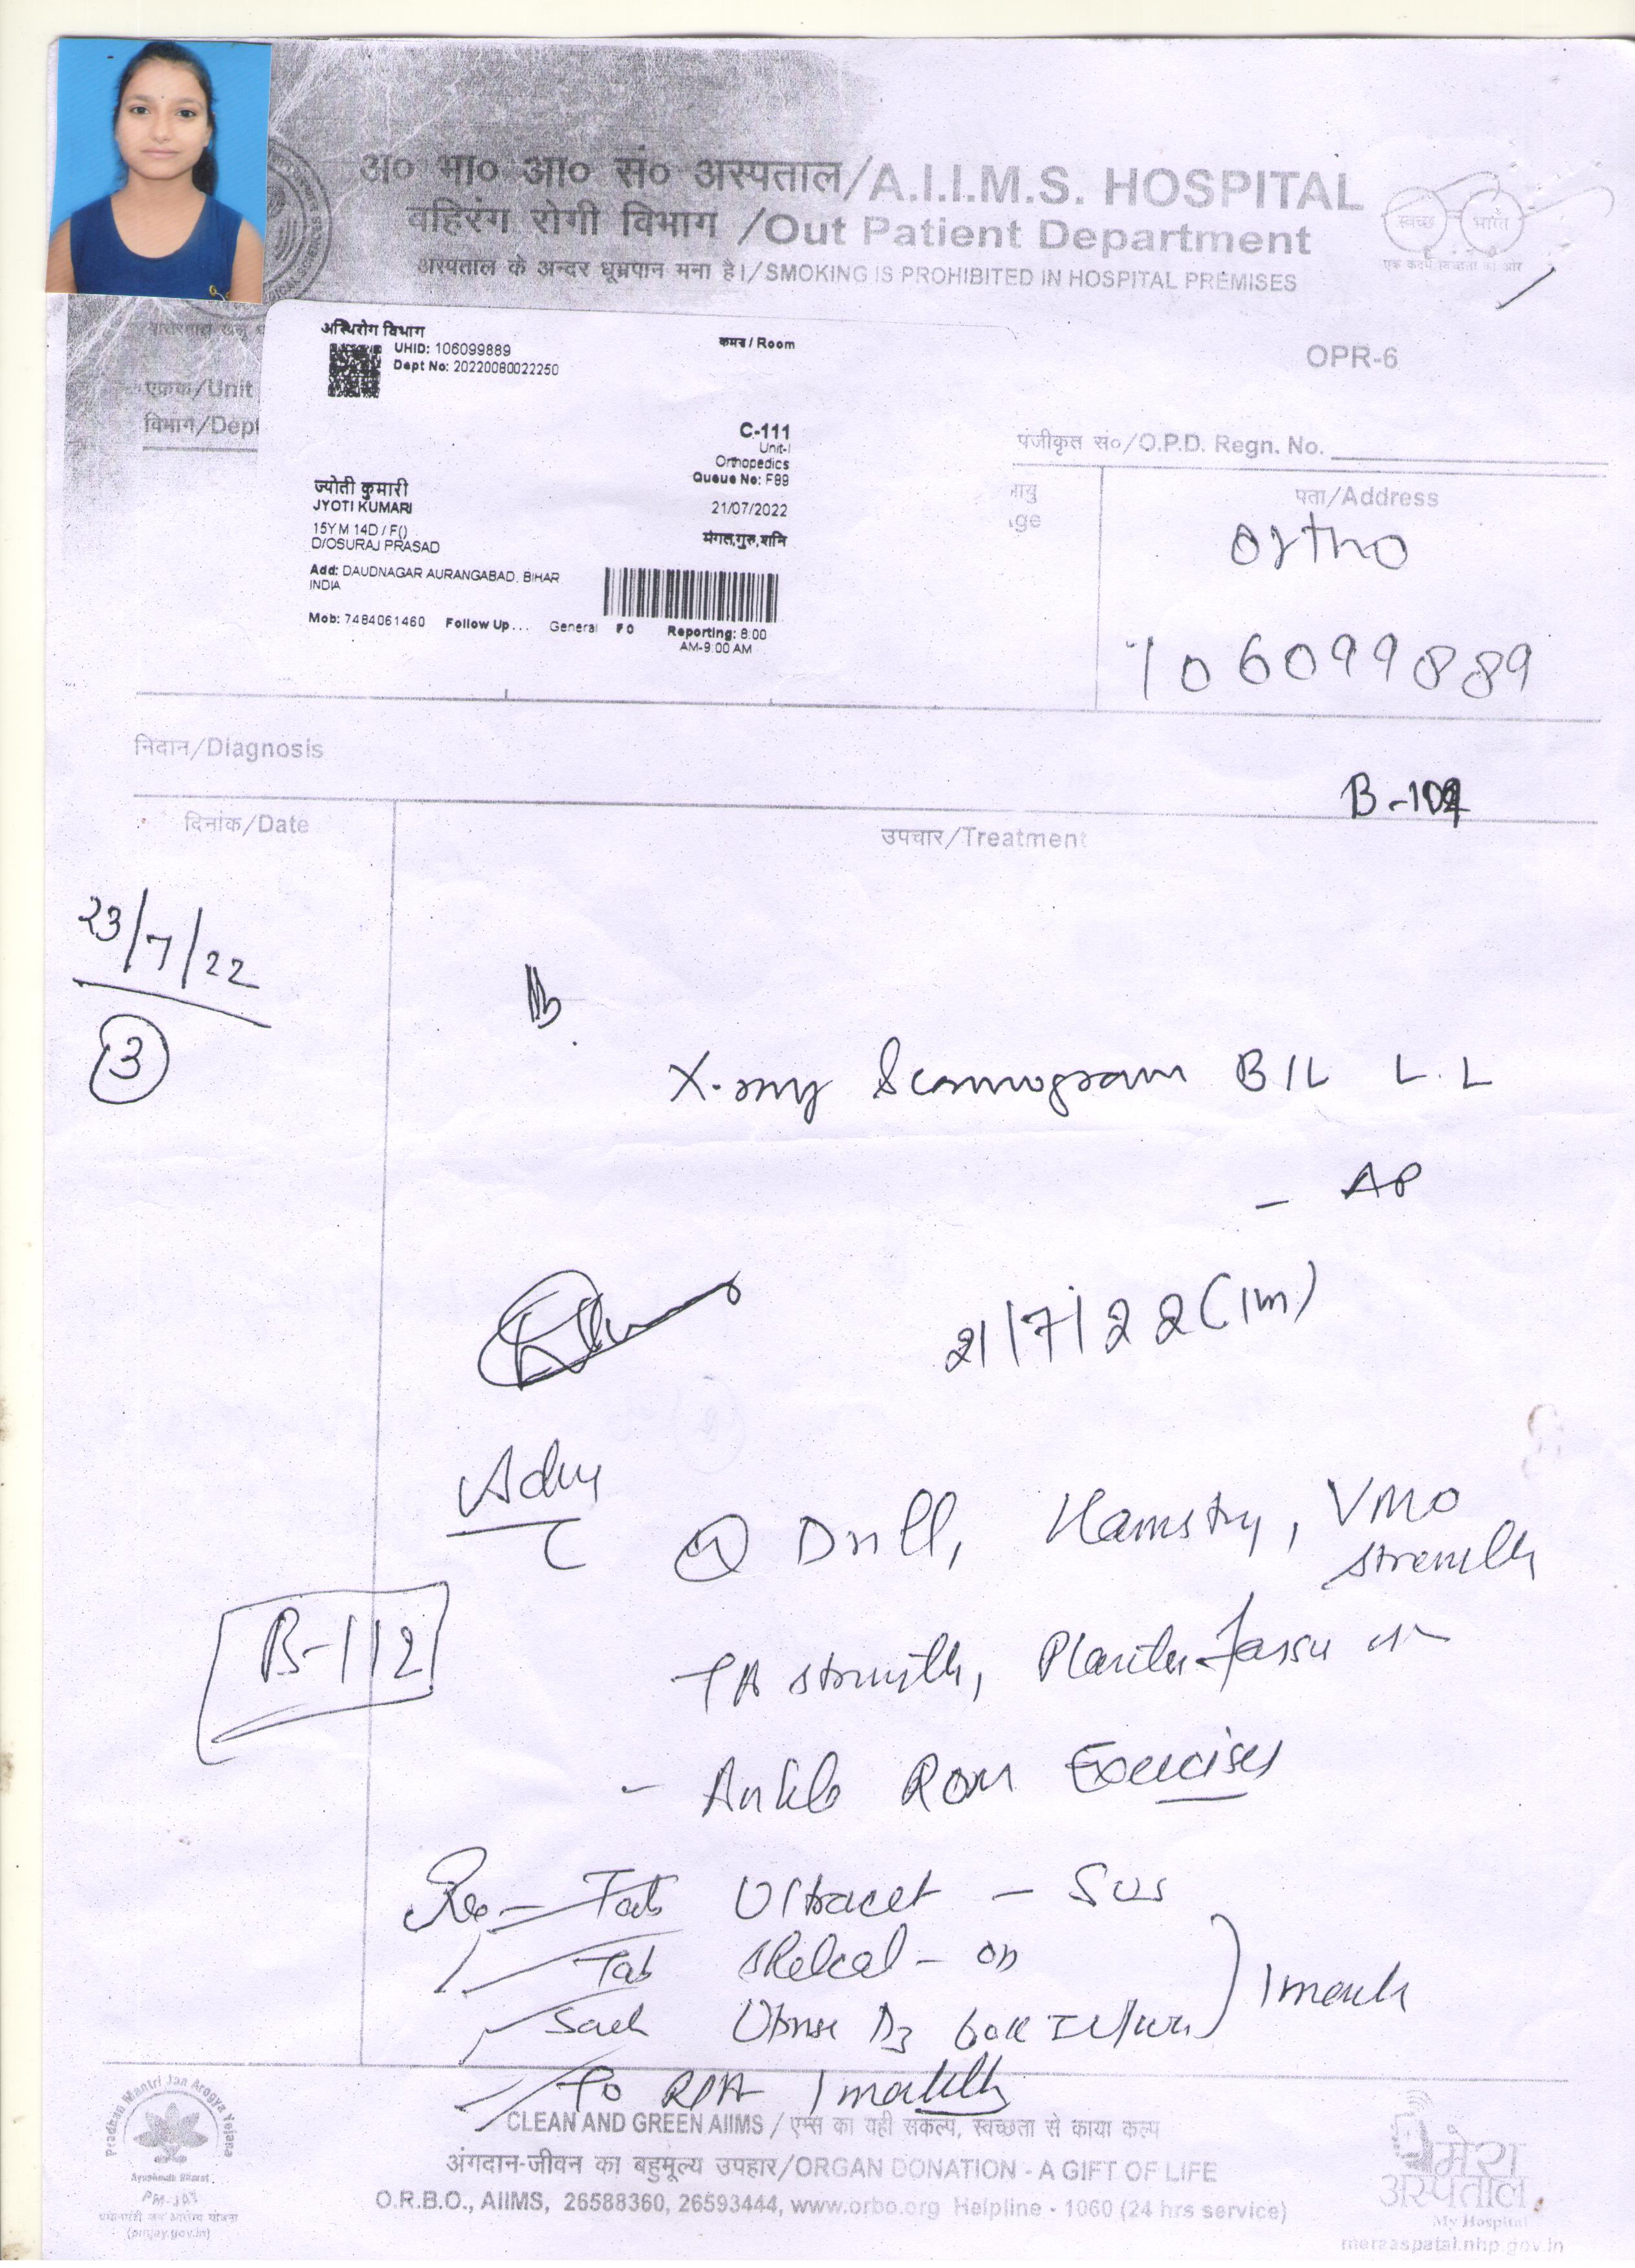 अ० भा० आ० सं० अस्पताल/A.I.I.M.S. HOSPITAL
वहिरंग रोगी विभाग /Out Patient Department
अस्पताल के अन्दर धूम्रपान मना है।/SMOKING IS PROHIBITED IN HOSPITAL PREMISES
स्वच्छ भारत
एक कदम स्वच्छता की ओर
OPR-6
अस्थिरोग विभाग
UHID: 106099889
Dept No: 20220080022250
कमरा / Room
C-111
Unit-I
Orthopedics
Queue No: F89
21/07/2022
मंगल,गुरु,शनि
ज्योती कुमारी
JYOTI KUMARI
15Y M 14D / F()
D/OSURAJ PRASAD
Add: DAUDNAGAR AURANGABAD, BIHAR
INDIA
Mob: 7484061460 Follow Up... General F0 Reporting: 8:00
AM-9:00 AM
/Unit
विभाग/Dept
पंजीकृत सं०/O.P.D. Regn. No.
पता/Address
ortho
106099889
निदान/Diagnosis
दिनांक/Date
उपचार/Treatment
23/7/22
3
X-ray Scanogram B/L L.L
- AP
21/7/22 (1m)
Adv
Q Drill, Hamstring, VMO
strength
TA strength, Plantar fascia
- Ankle ROM Exercises
B-112
Tab Ultracet - SOS
Tab Shelcal - OD
Sach D3 60K
1 month
1 month
CLEAN AND GREEN AIIMS / एम्स का यही संकल्प, स्वच्छता से काया कल्प
अंगदान-जीवन का बहुमूल्य उपहार/ORGAN DONATION - A GIFT OF LIFE
O.R.B.O., AIIMS, 26588360, 26593444, www.orbo.org Helpline - 1060 (24 hrs service)
Pradhan Mantri Jan Arogya Yojana
Ayushman Bharat
(pmjay.gov.in)
मेरा
अस्पताल
My Hospital
meraaspatal.nhp.gov.in